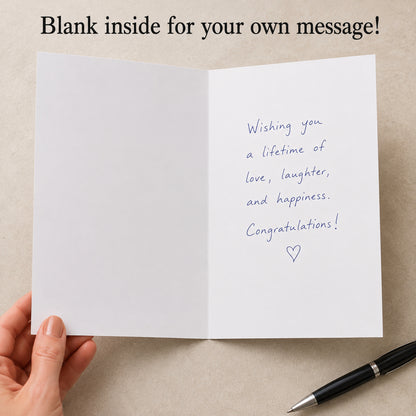 Blank inside for your own message!
Wishing you
a lifetime of
love, laughter,
and happiness.
Congratulations!